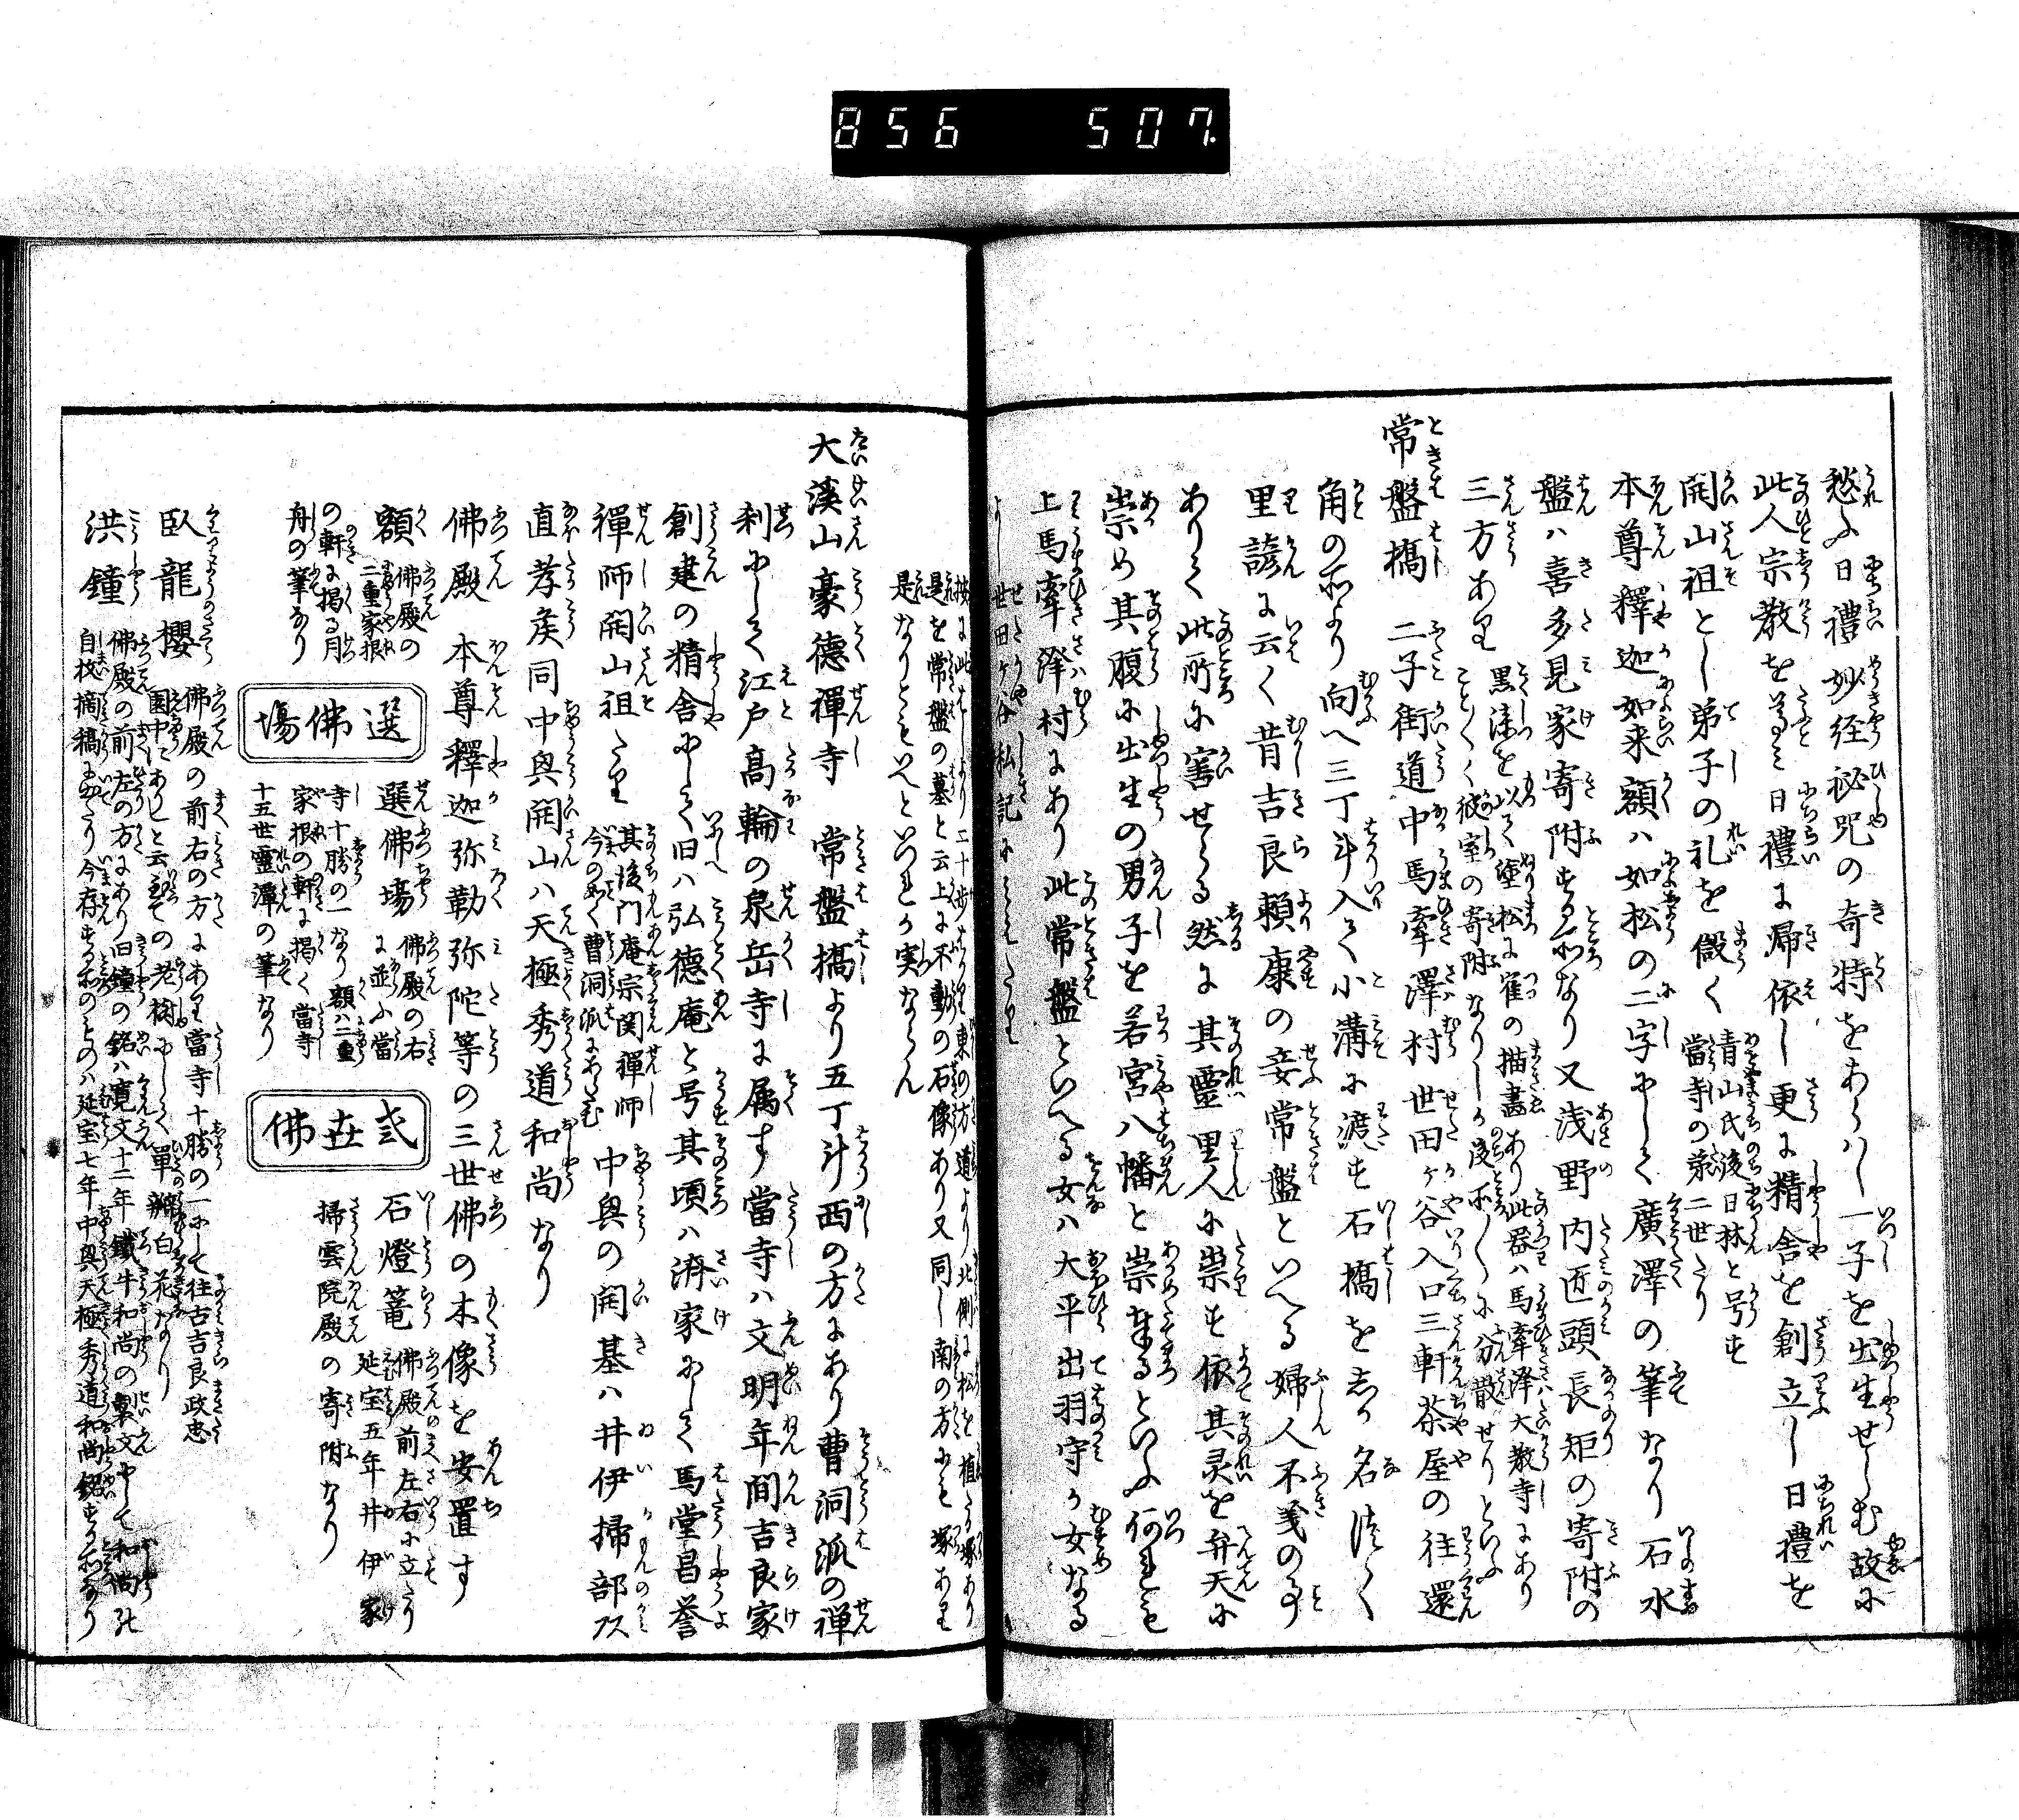 856 507.
愁ふ日禮妙経祕咒の奇特をあらハし一子を出生せしむ故に
此人宗教を尊み日禮に帰依し更に精舎を創立し日禮を
開山祖とし弟子の礼を儼く
青山氏後日林と号す
當寺の第二世たり
本尊釋迦如来額ハ如松の二字にして廣澤の筆なり石水
盤ハ喜多見家寄附する所なり又浅野内匠頭長矩の寄附の
三方あり
黒漆を以て塗松に雀の描畵あり此器ハ馬牽澤大教寺にあり
ことく彼室の寄附なりしか後所〱に分散せりといふ
常盤橋 二子街道中馬牽澤村世田ヶ谷入口三軒茶屋の往還
角の所より向へ三丁斗入て小溝に渡す石橋をしか名つく
里諺に云く昔吉良頼康の妾常盤といへる婦人不義の事
ありて此所に害せらる然に其靈里人に祟す依其灵を弁天に
崇め其腹に出生の男子を若宮八幡と崇奉るといふ何れも
上馬牽澤村にあり此常盤といへる女ハ大平出羽守か女なる
よし世田ヶ谷私記にみえたり
按に此はしより二十歩はかり東の方道より北側に松を植たる塚あり
是を常盤の墓と云上に不動の石像あり又同し南の方にも塚あり
是なりともいへといつれか実ならん
大溪山豪德禪寺 常盤橋より五丁斗西の方にあり曹洞派の禅
刹にして江戸高輪の泉岳寺に属す當寺ハ文明年間吉良家
創建の精舎にして旧ハ弘德庵と号其頃ハ濟家にして馬堂昌誉
禪師開山祖たり
其後門庵宗関禪師
今のめく曹洞派にあらたむ
中興の開基ハ井伊掃部頭
直孝矦同中興開山ハ天極秀道和尚なり
佛殿 本尊釋迦弥勒弥陀等の三世佛の木像を安置す
額 佛殿の
二重家根
の軒に掲る月
舟の筆なり
選佛場
選佛場 佛殿の右
に並ふ當
寺十勝の一なり額ハ二重
家根の軒に掲く當寺
十五世霊潭の筆なり
弎世佛
石燈篭 佛殿前左右に立たり
延宝五年井伊家
掃雲院殿の寄附なり
臥龍櫻 佛殿の前右の方にあり當寺十勝の一にして往古吉良政忠
園中にありしと云至ての老樹にして單瓣白花なり
洪鐘 佛殿の前左の方にあり旧鐘の銘ハ寛文十二年鐵牛和尚の製文にして和尚の
自枝摘稿に出たり今存する所のものハ延宝七年中興天極秀道和尚銘する所なり